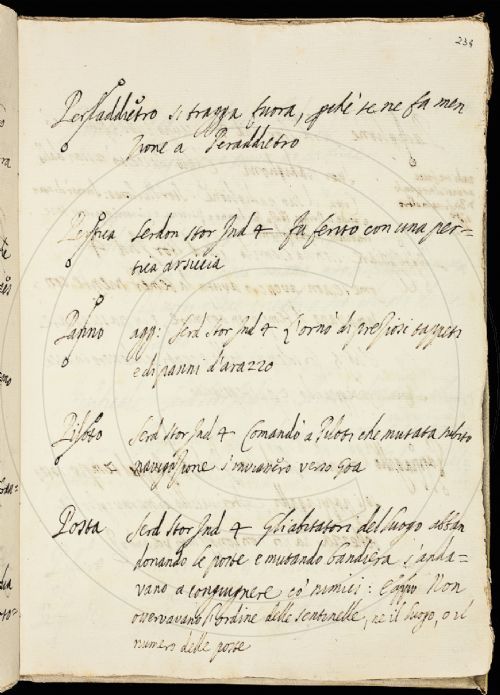 234
Per l'addietro si tragga fuora, perchè se ne fa men
zione a Peraddietro
Pertica Serdon Stor Ind 4 fu ferito con una per=
tica arsiccia
Panno agg: Serd Stor Ind 4 L'ornò di preziosi tappeti
e di panni d'arazzo
Piloto Serd Stor Ind 4 Comandò a Piloti che mutata subito
navigazione s'inviassero verso Goa
Posta Serd Stor Ind 4 Gli abitatori del luogo abban
donando le poste e mutando bandiera s'anda-
vano a congiugnere co' nimici: E appo Non
osservavano l'ordine delle sentinelle, ne il luogo, o il
numero delle poste